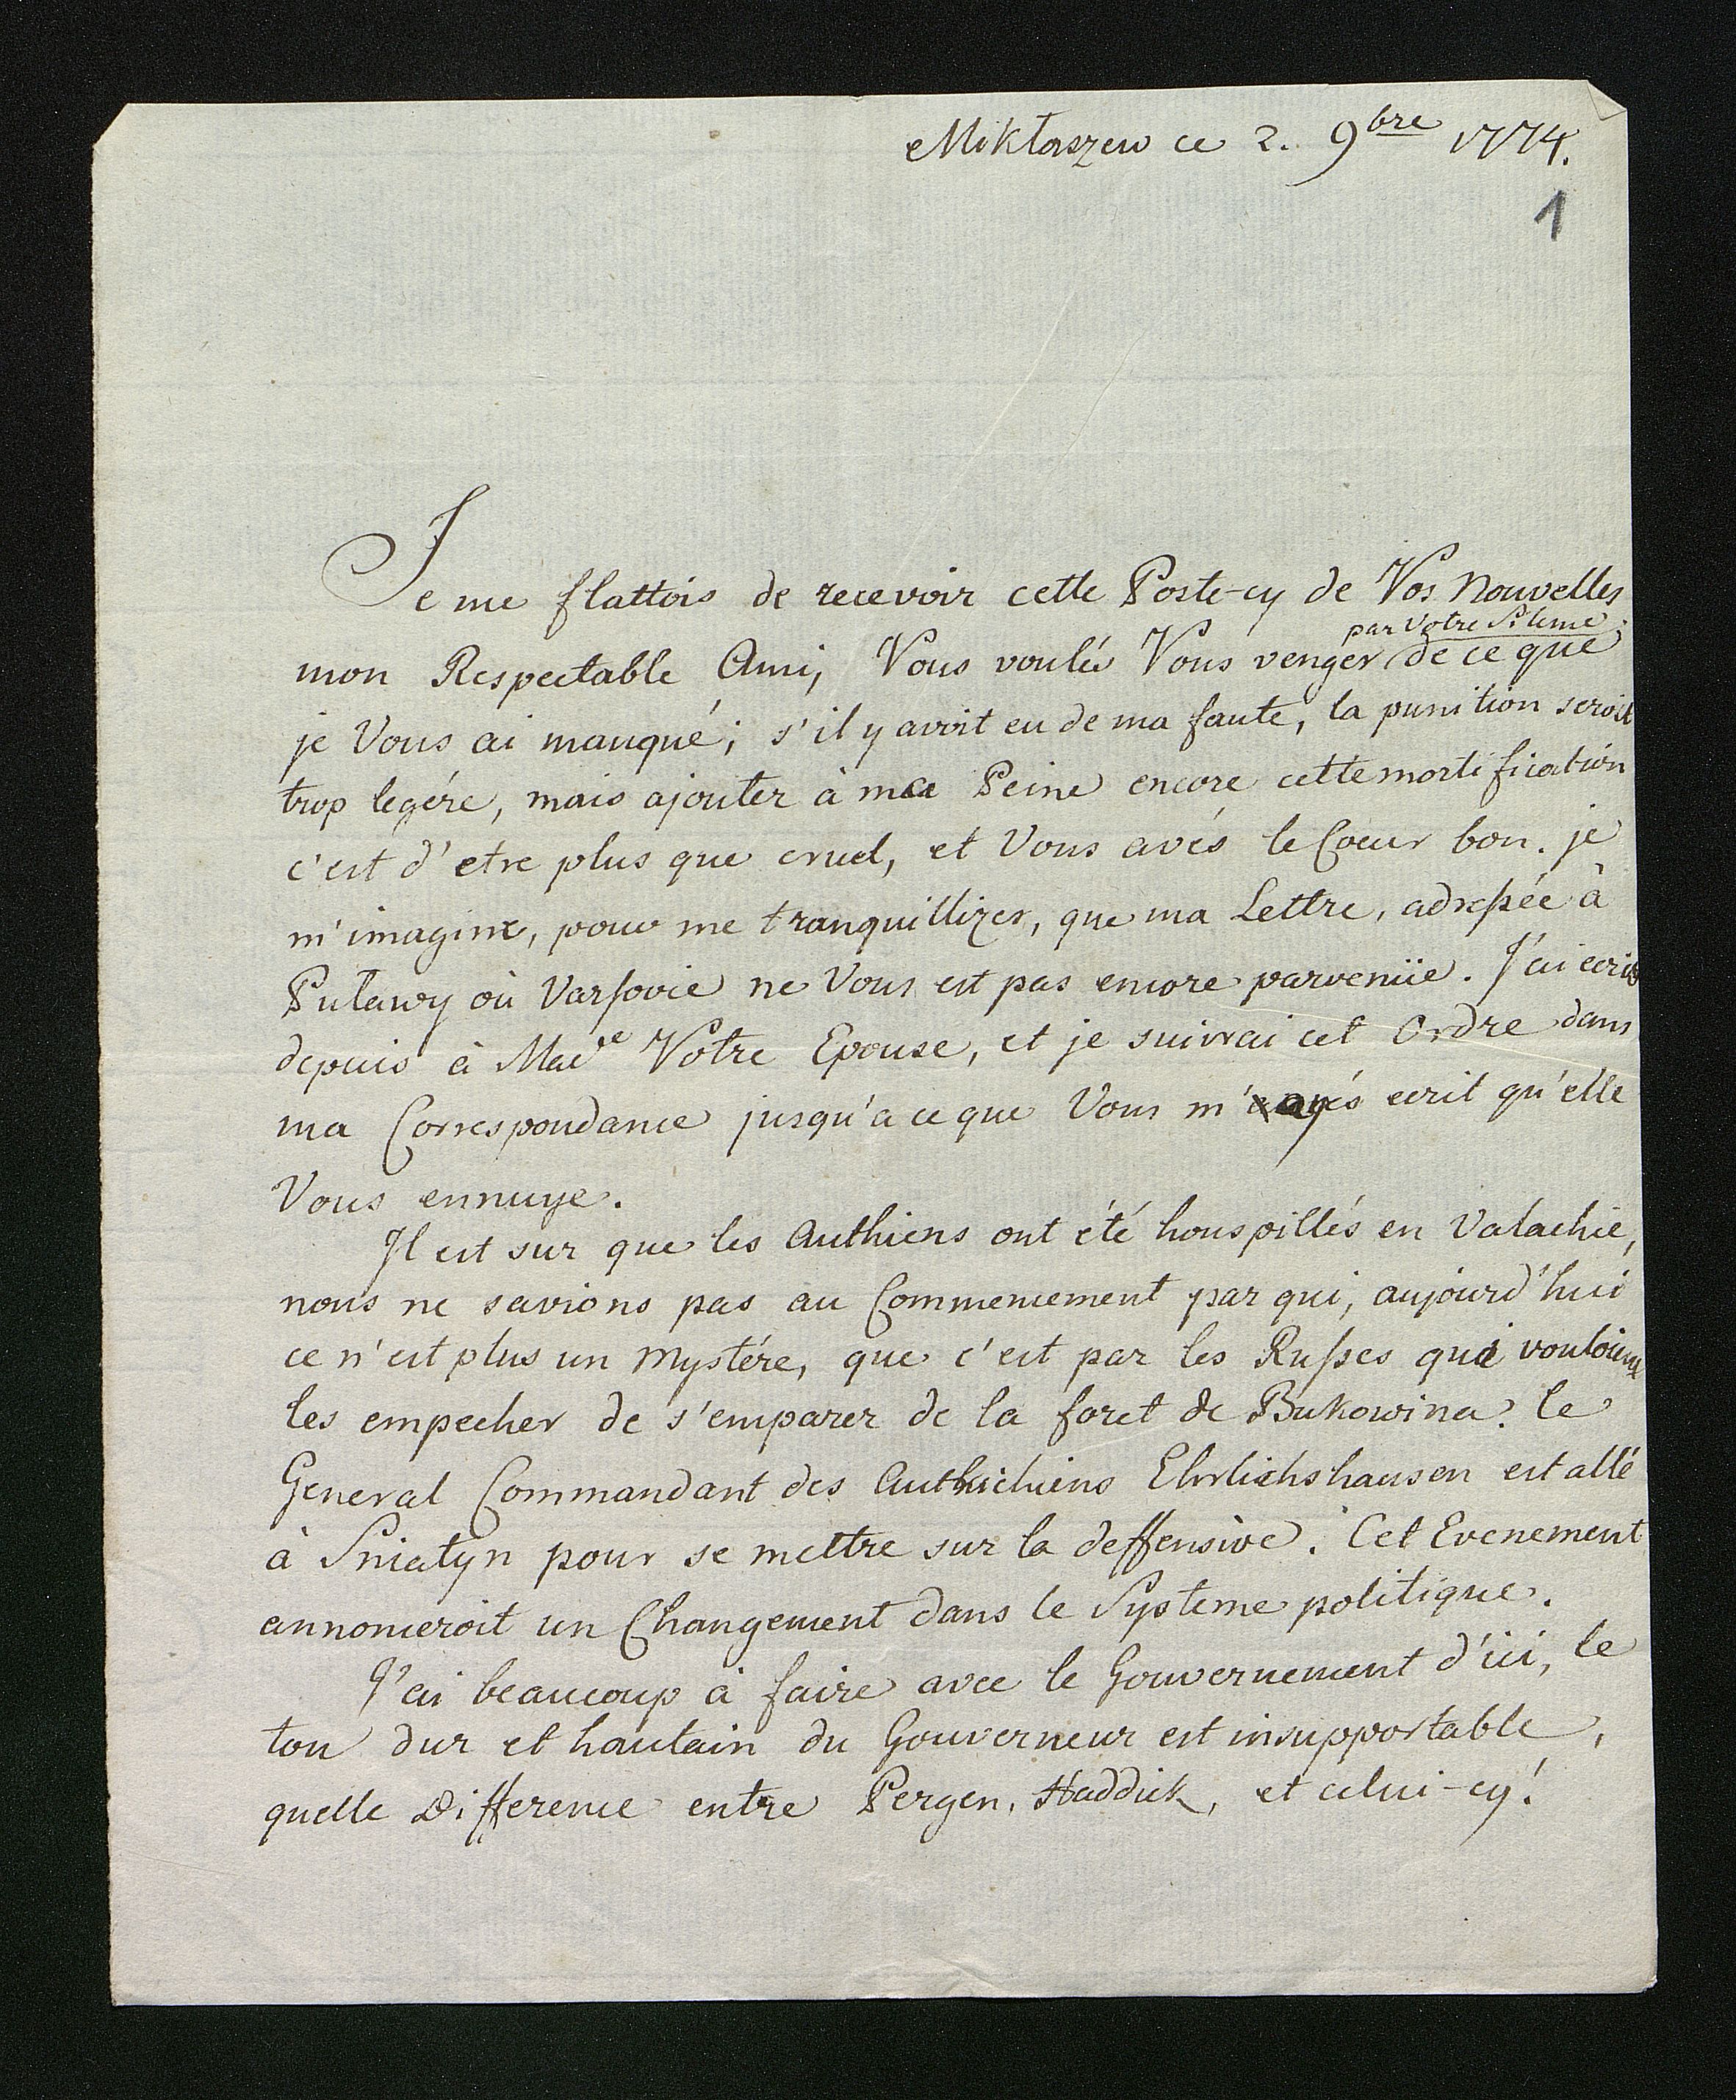 Miktaszew ce 2. 9bre 1774.
1
Je me flattois de recevoir cette Poste-cy de Vos Nouvelles
par Votre Silence
mon Respectable Ami, Vous voulés Vous venger de ce que
je Vous ai manqué; s'il y avoit eu de ma faute, la punition seroit
trop legére, mais ajouter à ma Peine encore cette mortification
c'est d'etre plus que cruel, et Vous avés le Coeur bon. je
m'imagine, pour me tranquillizer, que ma Lettre, adressée à
Pulawy où Varsovie ne Vous est pas encore parvenüe. J'ai ecris
depuis à Made Votre Epouse, et je suivrai cet Ordre dans
ma Correspondance jusqu'a ce que Vous m'ayés ecrit qu'elle
Vous ennuye.
Il est sur que les Authiens ont été houspillés en Valachie,
nous ne savions pas au Commencement par qui, aujourd'hui
ce n'est plus un Mystére, que c'est par les Russes qui vouloient
les empecher de s'emparer de la foret de Bukowina. le
General Commandant des Authrichiens Ehrlichshausen est allé
à Sniatyn pour se mettre sur la deffensive. Cet Evenement
annonceroit un Changement dans le Systeme politique.
J'ai beaucoup à faire avec le Gouvernement d'ici, le
ton dur et hautain du Gouverneur est insupportable,
quelle Difference entre Pergen, Haddick, et celui-cy!